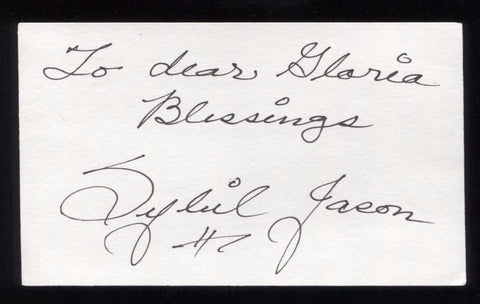 To dear Gloria
Blessings
Sybil Jason